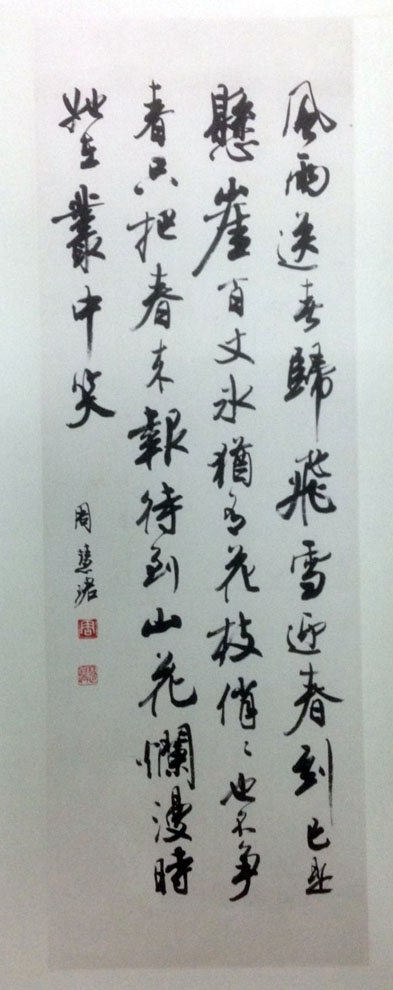 風雨送春歸飛雪迎春到已是
懸崖百丈冰猶有花枝俏〻也不争
春只把春来報待到山花爛漫時
她在叢中笑
周慧珺
周